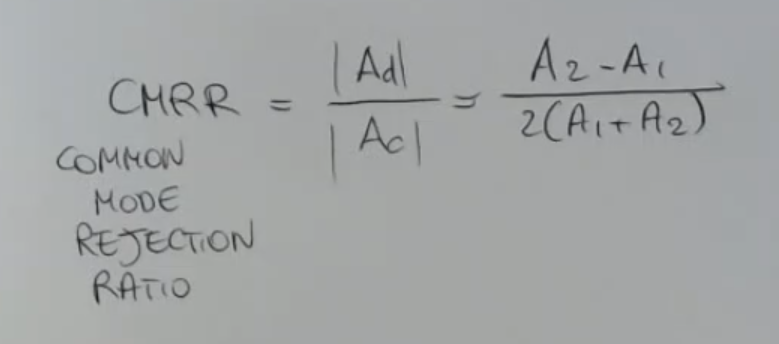 CMRR = |Ad| / |Ac| = A2 - A1 / 2(A1 + A2)
COMMON
MODE
REJECTION
RATIO